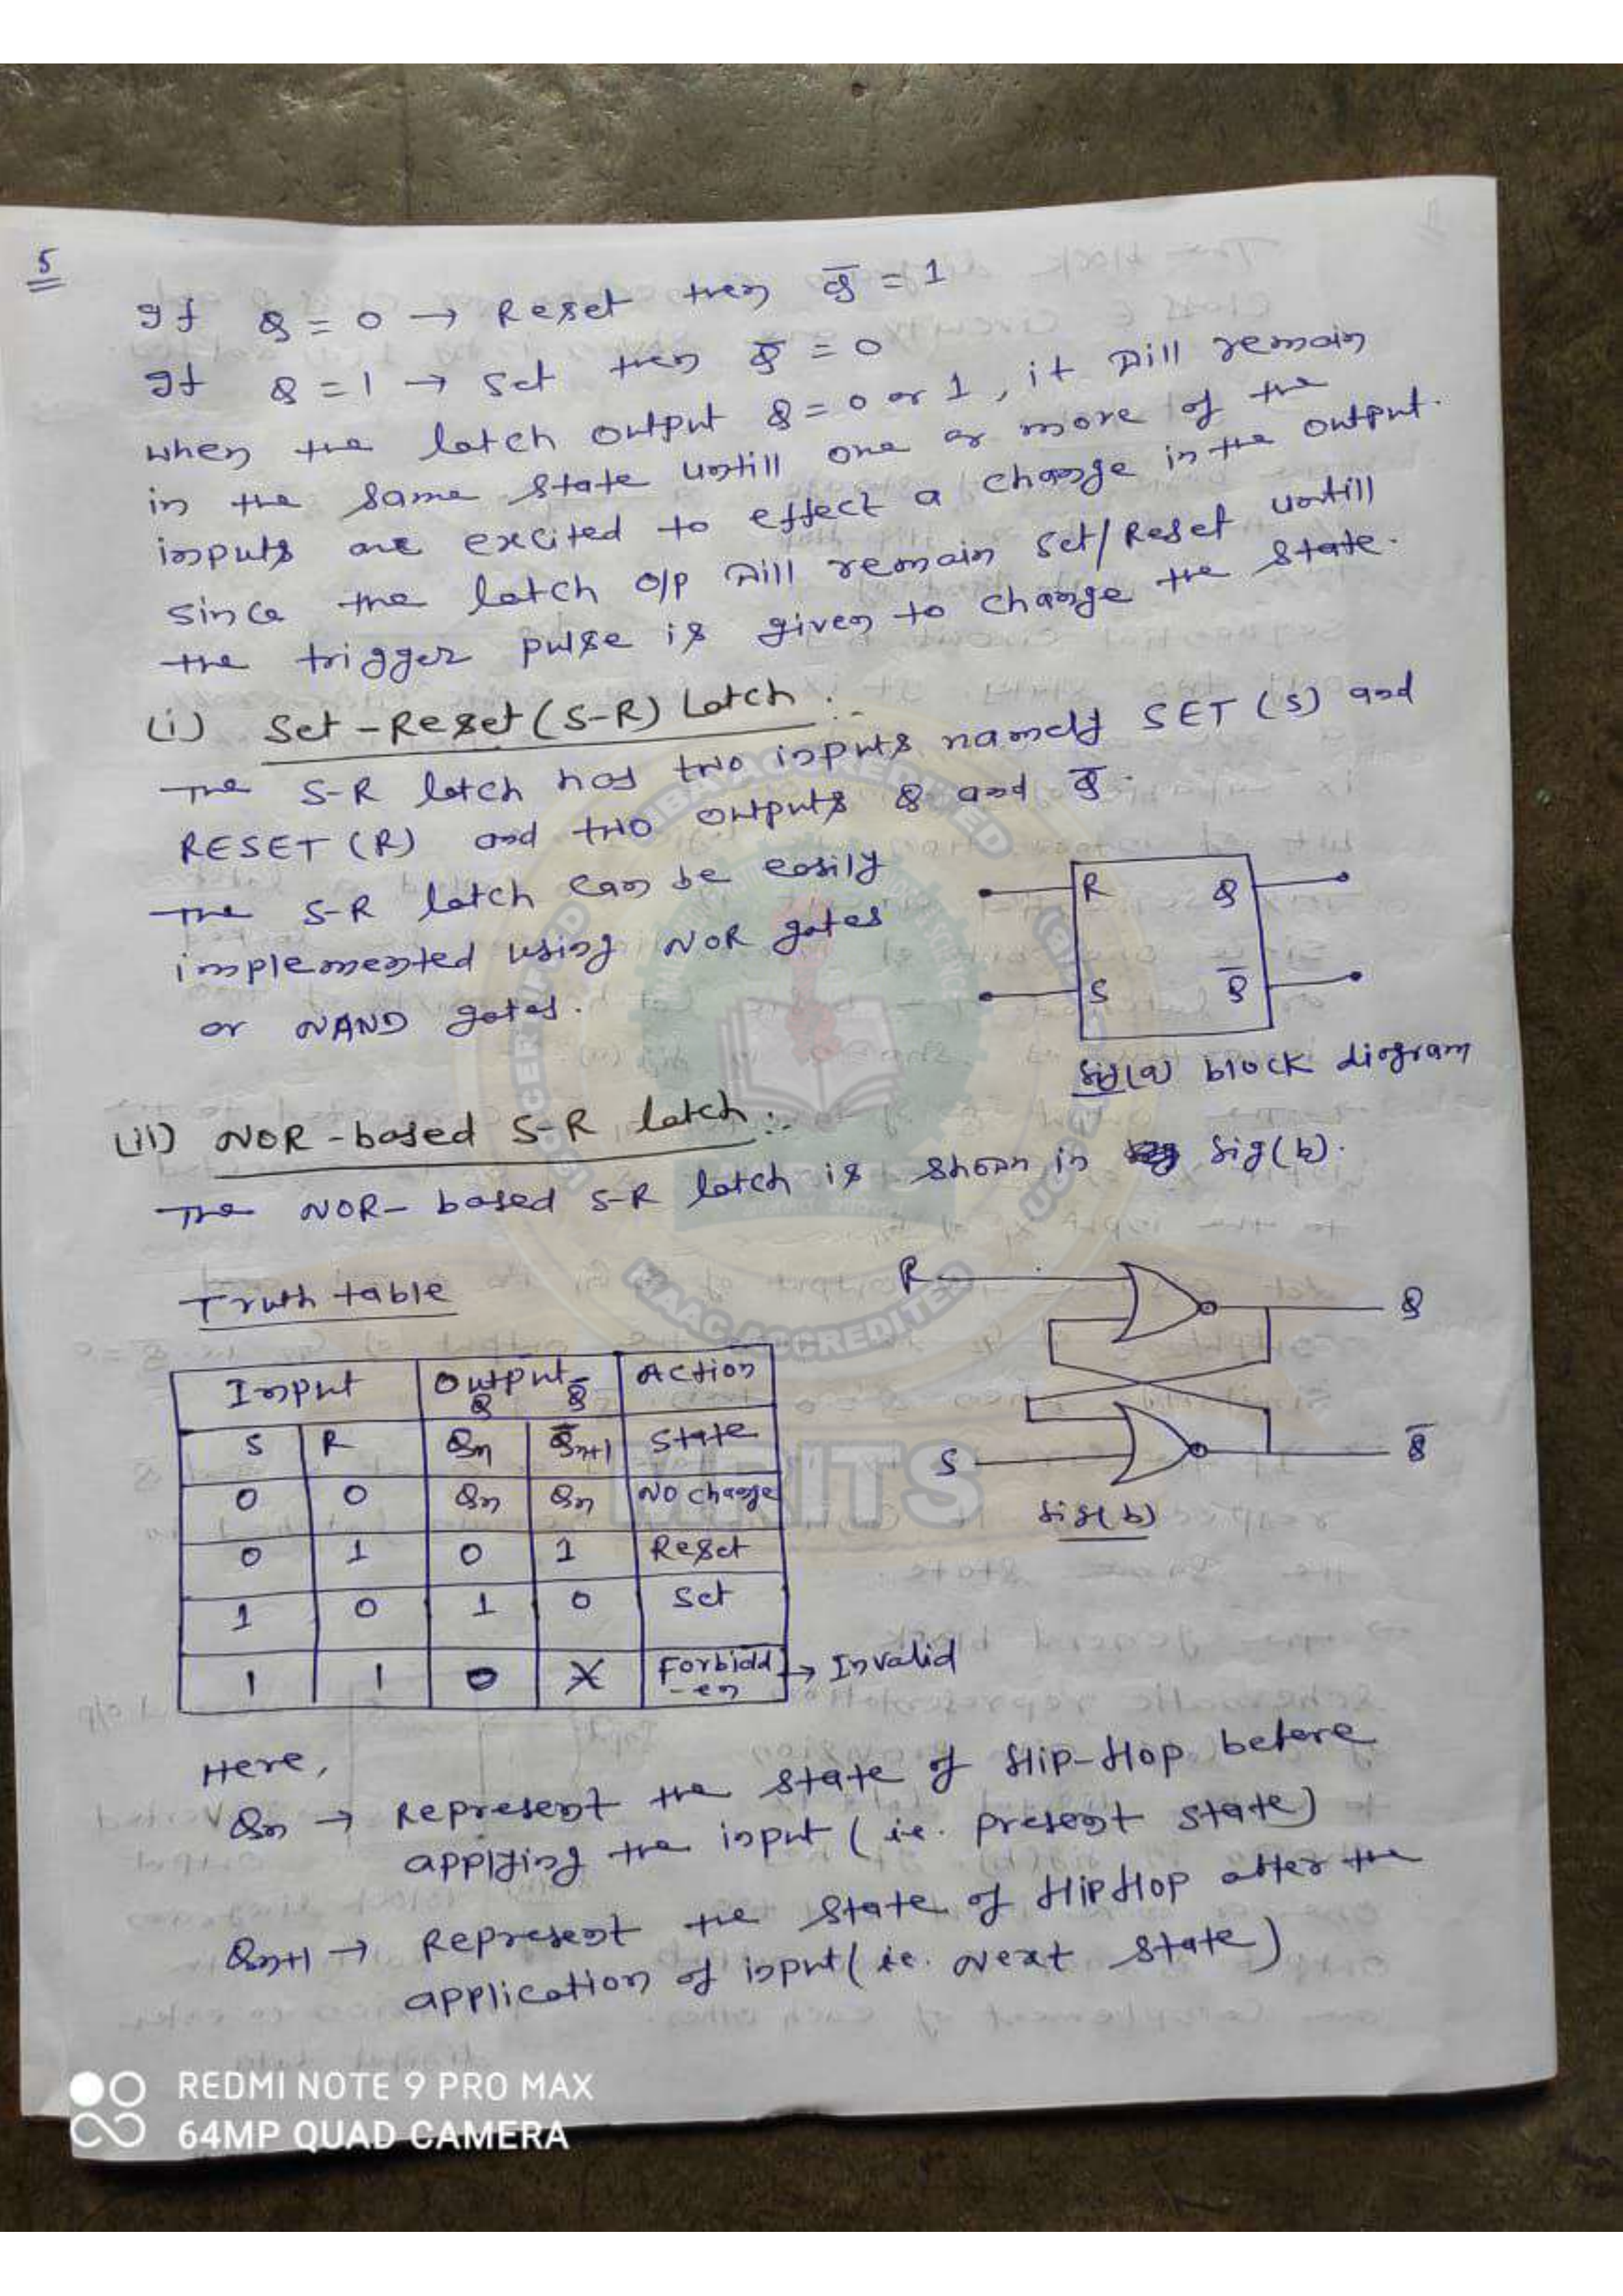 5
If Q = 0 → Reset then Q̅ = 1
If Q = 1 → Set then Q̅ = 0
When the latch output Q = 0 or 1, it will remain
in the same state untill one or more of the
inputs are excited to effect a change in the output.
Since the latch o/p will remain Set/Reset untill
the trigger pulse is given to change the state.
(i) Set-Reset (S-R) Latch :-
The S-R latch has two inputs namely SET (S) and
RESET (R) and two outputs Q and Q̅.
The S-R latch can be easily
implemented using NOR gates
or NAND gates.
R Q
S Q̅
fig(a) block diagram
(ii) NOR-based S-R latch :-
The NOR-based S-R latch is shown in fig(b).
Truth table
R Q
S Q̅
fig(b)
Input Output Action
Q Q̅
S R Qn Q̅n+1 State
0 0 Qn Qn No change
0 1 0 1 Reset
1 0 1 0 Set
1 1 0 X Forbidd-en → Invalid
Here,
Qn → Represent the state of flip-flop before
applying the input (ie. present state)
Qn+1 → Represent the state of flipflop after the
application of input (ie. Next state)
NAAC ACCREDITED
MRITS
REDMI NOTE 9 PRO MAX
64MP QUAD CAMERA